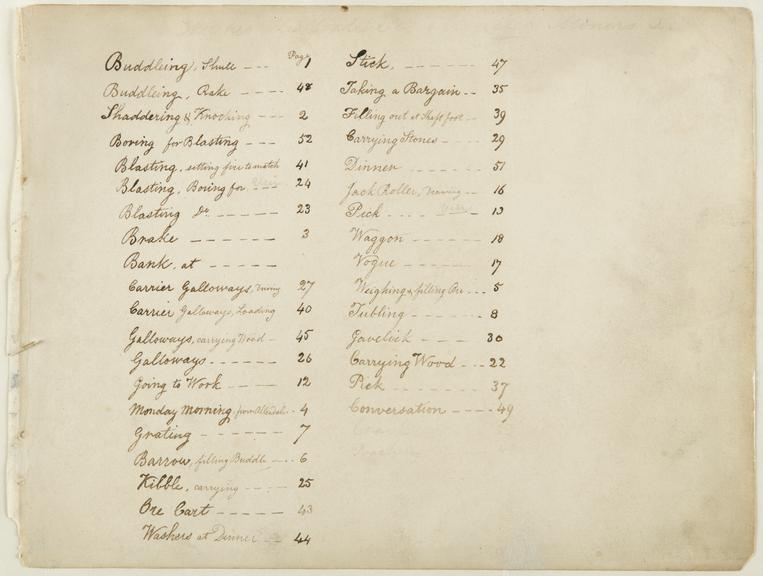 Miners &c
Page
Buddleing, Shute --- 1
Buddleing, Rake ---- 48
Shaddering & Knocking --- 2
Boring for Blasting --- 52
Blasting, setting fire to match 41
Blasting, Boring for --- 24
Blasting Do ---- 23
Brake ------ 3
Bank, at -----
Carrier Galloways, 27
Carrier Galloways, Loading 40
Galloways, carrying Wood - 45
Galloways ------ 26
Going to Work ---- 12
Monday Morning, from Allendale -- 4
Grating ------ 7
Barrow, filling Buddle ---- 6
Kibble, carrying ---- 25
Ore Cart ----- 43
Washers at Dinner --- 44
Stick, ------ 47
Taking a Bargain -- 35
Filling out at Shaft foot -- 39
Carrying Stones --- 29
Dinner ------ 51
Jack Roller, Drawing -- 16
Pick .... 13
Waggon ------ 18
Vogue ------ 17
Weighing & filling Ore --- 5
Tubling ----- 8
Gavelick ---- 30
Carrying Wood --- 22
Pick ------ 37
Conversation ---- 49